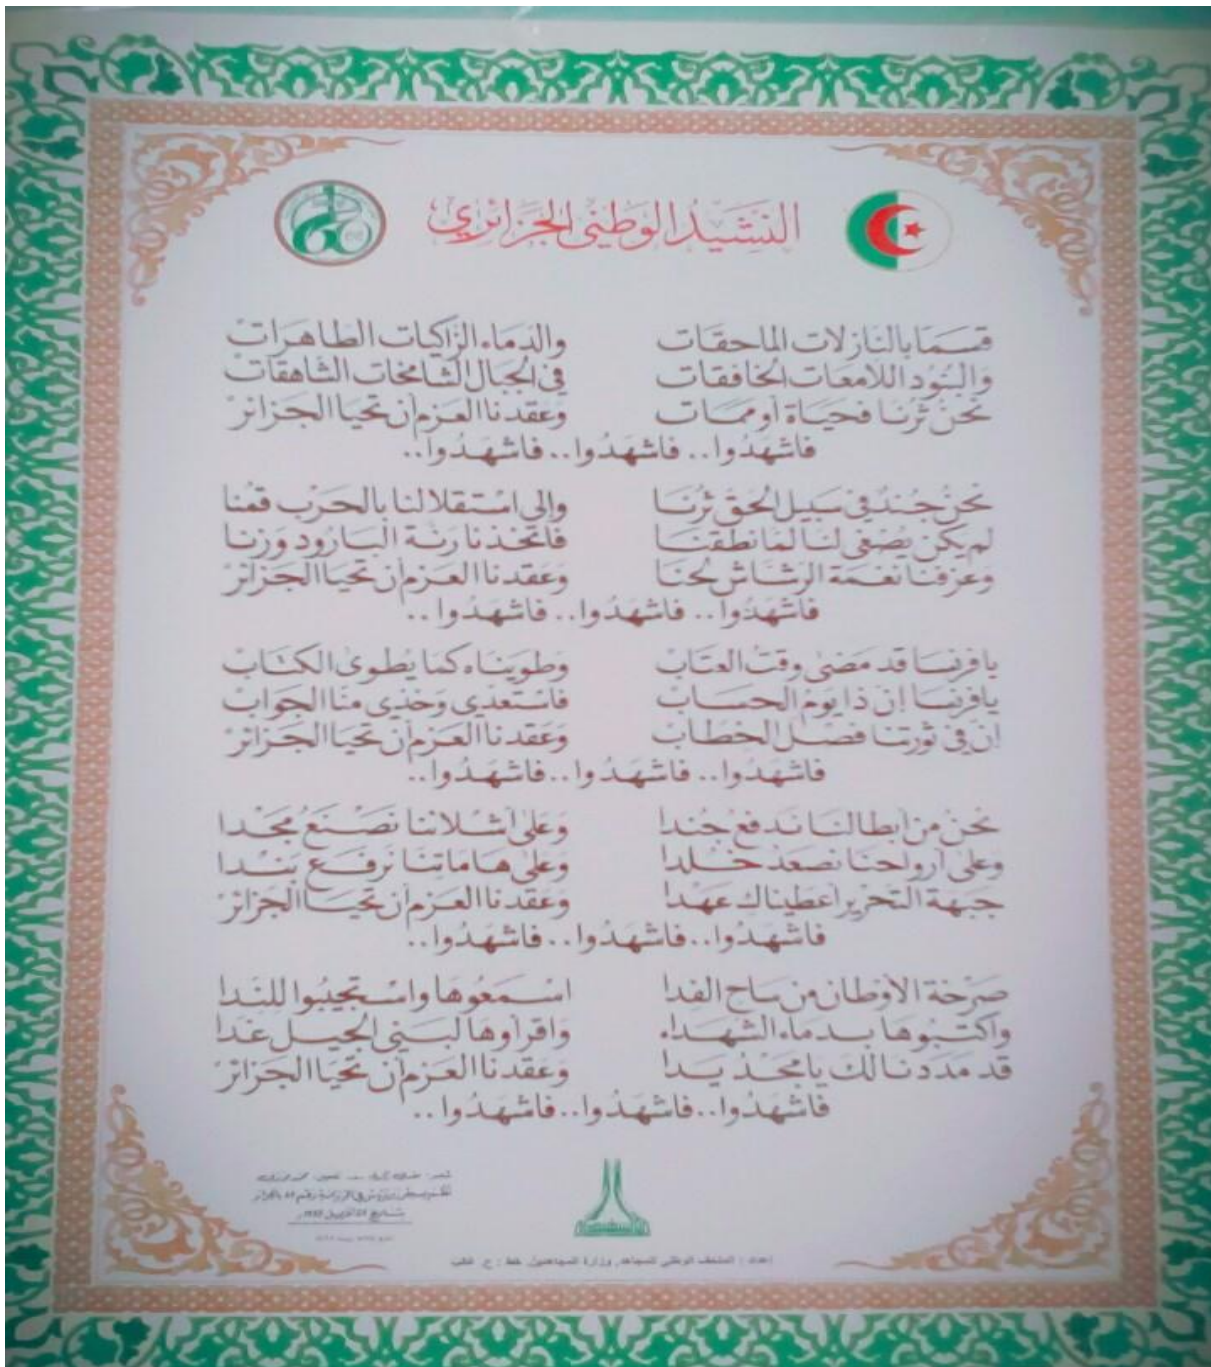 النشيد الوطني الجزائري
قسمًا بالنازلات الماحقات والدماء الزاكيات الطاهرات
والبنود اللامعات الخافقات في الجبال الشامخات الشاهقات
نحن ثرنا فحياة أو ممات وعقدنا العزم أن تحيا الجزائر
فاشهدوا.. فاشهدوا.. فاشهدوا..
نحن جند في سبيل الحق ثرنا وإلى استقلالنا بالحرب قمنا
لم يكن يصغى لنا لما نطقنا فاتخذنا رنة البارود وزنا
وعزفنا نغمة الرشاش لحنا وعقدنا العزم أن تحيا الجزائر
فاشهدوا.. فاشهدوا.. فاشهدوا..
يا فرنسا قد مضى وقت العتاب وطويناه كما يطوى الكتاب
يا فرنسا إن ذا يوم الحساب فاستعدي وخذي منا الجواب
إن في ثورتنا فصل الخطاب وعقدنا العزم أن تحيا الجزائر
فاشهدوا.. فاشهدوا.. فاشهدوا..
نحن من أبطالنا ندفع جندا وعلى أشلائنا نصنع مجدا
وعلى أرواحنا نصعد خلدا وعلى هاماتنا نرفع بندا
جبهة التحرير أعطيناك عهدا وعقدنا العزم أن تحيا الجزائر
فاشهدوا.. فاشهدوا.. فاشهدوا..
صرخة الأوطان من ساح الفدا اسمعوها واستجيبوا للندا
واكتبوها بدماء الشهداء واقرأوها لبني الجيل غدا
قد مددنا لك يا مجد يدا وعقدنا العزم أن تحيا الجزائر
فاشهدوا.. فاشهدوا.. فاشهدوا..
إعداد : المتحف الوطني للمجاهد, وزارة المجاهدين, خط : ح.